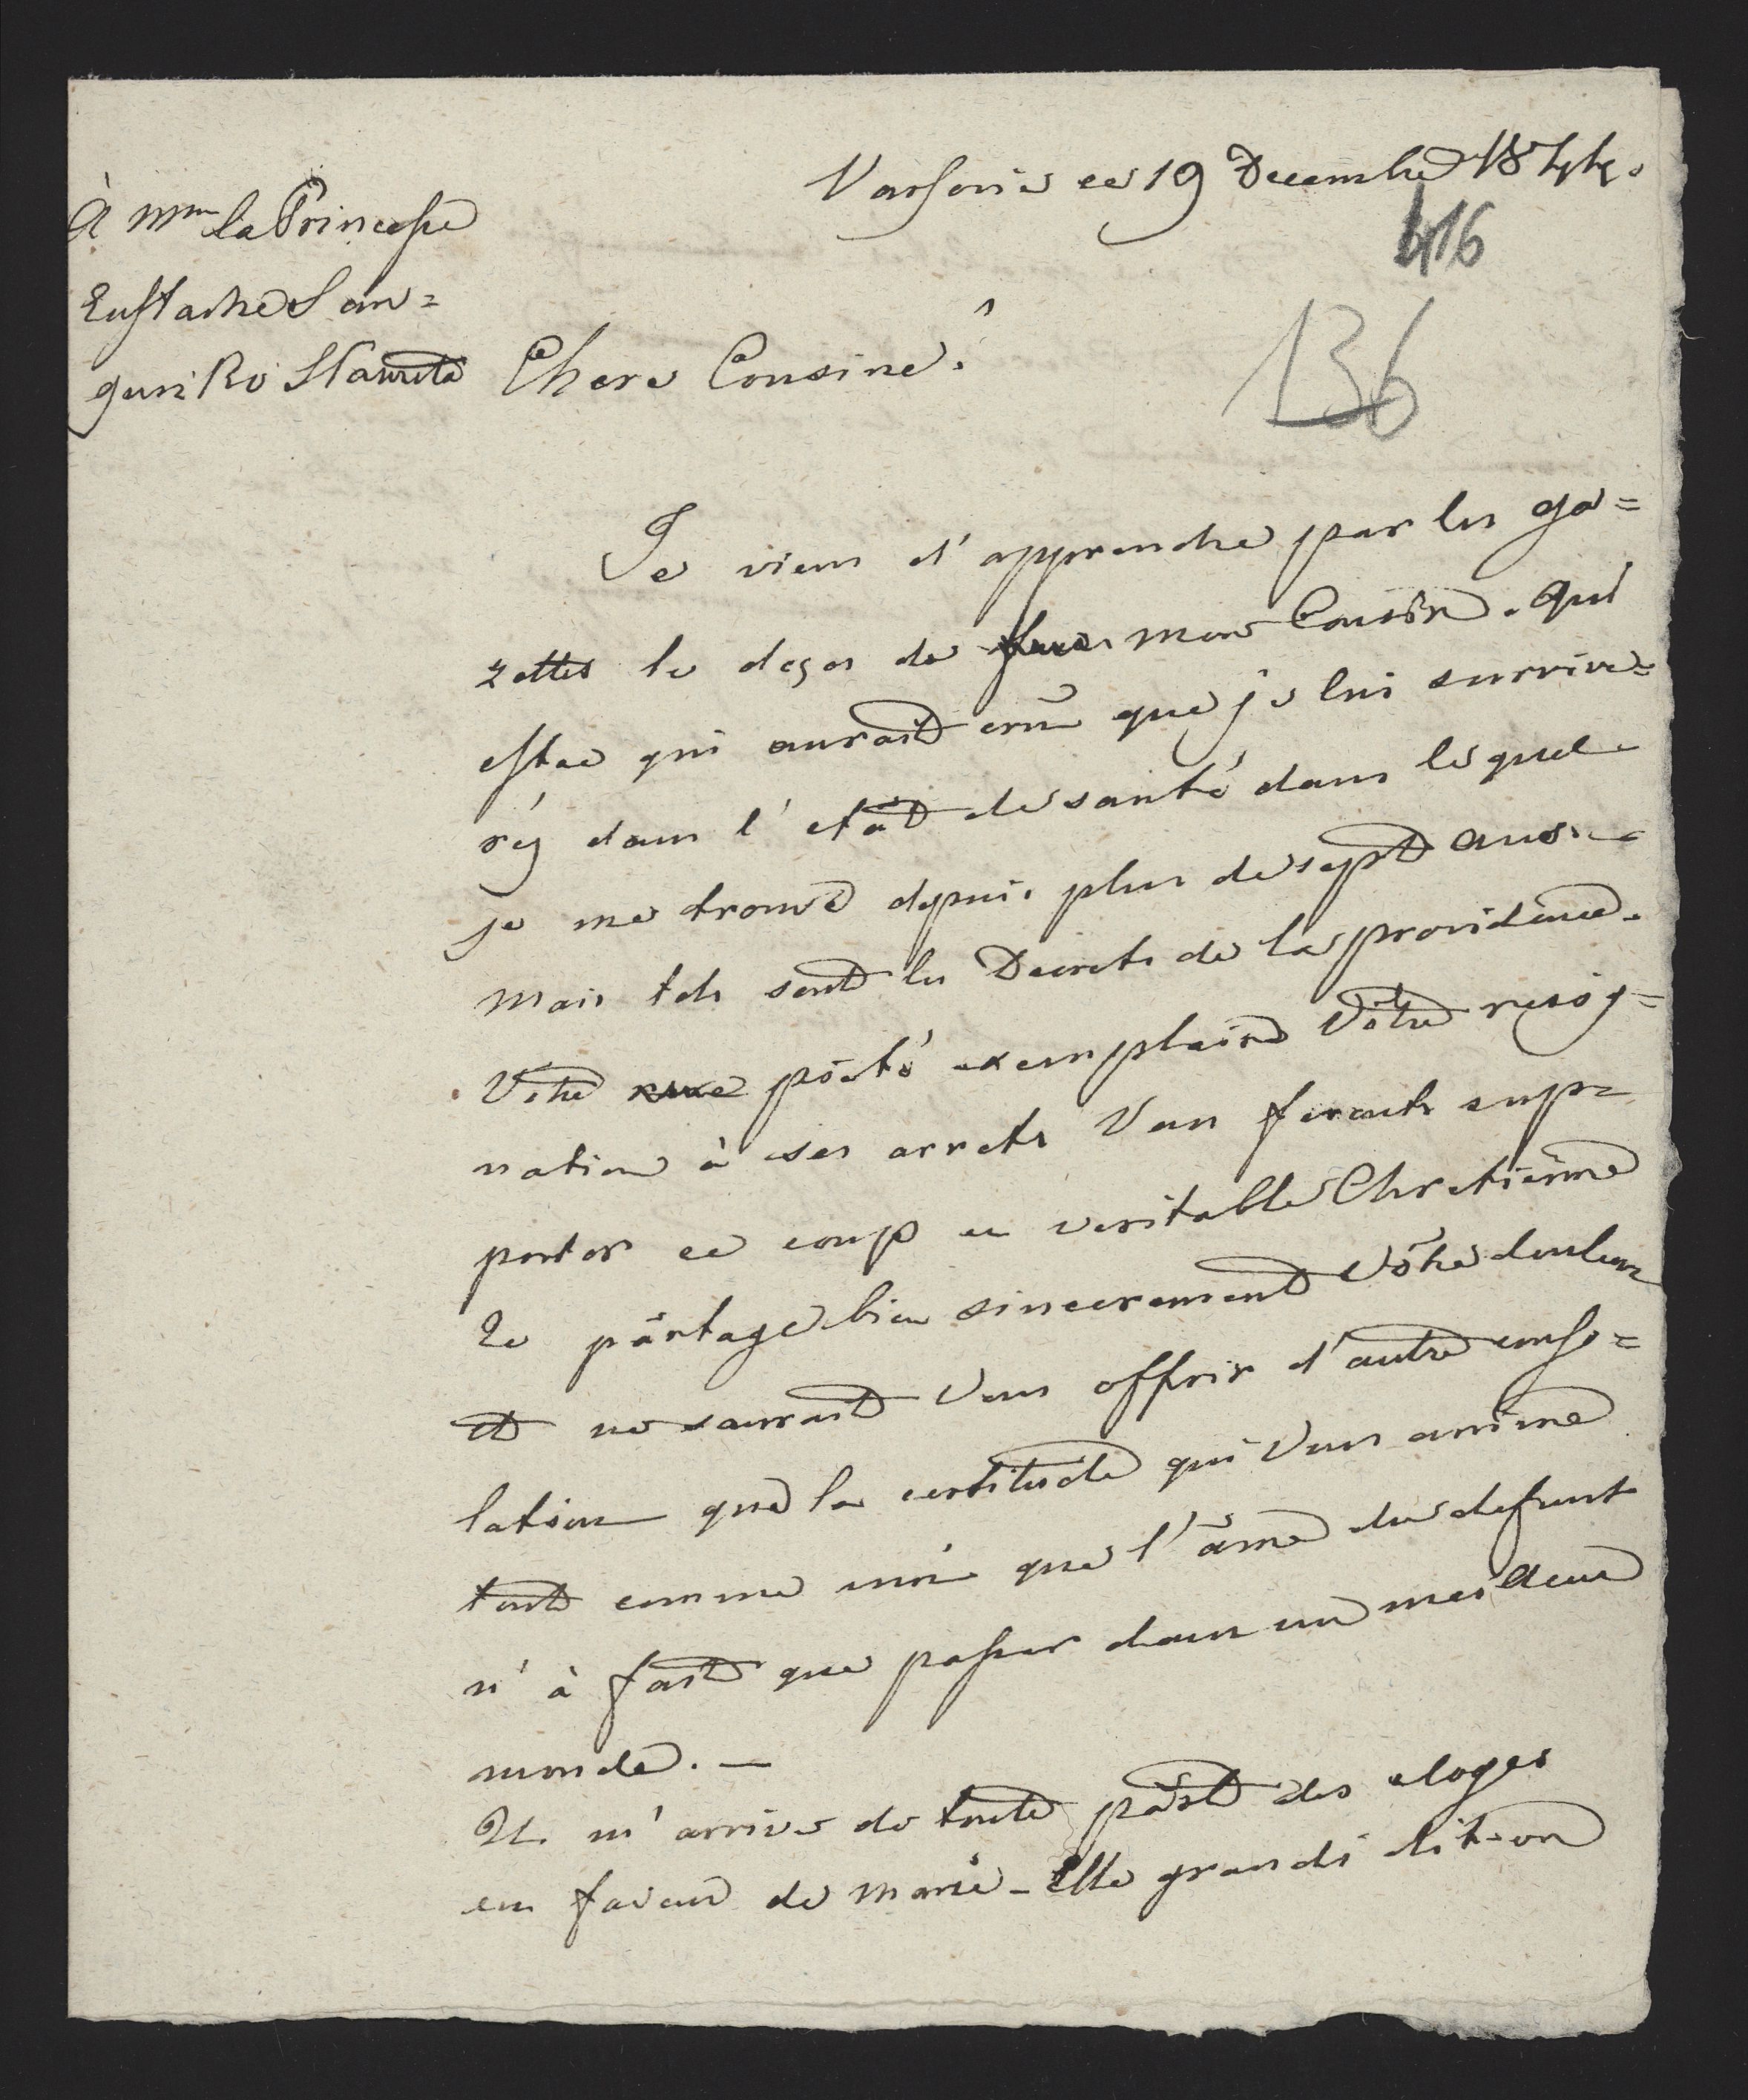 Varsovie ce 19 Decembre 1844.
À Mme la Princesse
Eustache San=
guszko Slawuta
416
136
Chere Cousine!
Je viens d'apprendre par les ga=
zettes le deçes de feue mon Cousin. Qui
estce qui auroit crû que je lui survive=
réj dans l'etât de santé dans le quel
je me trouve depuis plus de sept ans.
Mais tels sont les Decrets de la providence.
Vôtre rare pieté exemplaire Vôtre resig=
nation à ses arrets Vous feronts sup=
porter ce coup en veritable Chretienne
Je pârtage bien sincerement Vôtre douleur
et ne saurait Vous offrir d'autre conso=
lation que la certitude qui Vous anime
tout comme moi que l'âme du defunt
n'à fait que passer dans un meilleur
monde. —
Il m'arrive de toute pârt des eloges
en faveur de Marie - Elle grandi dit-on